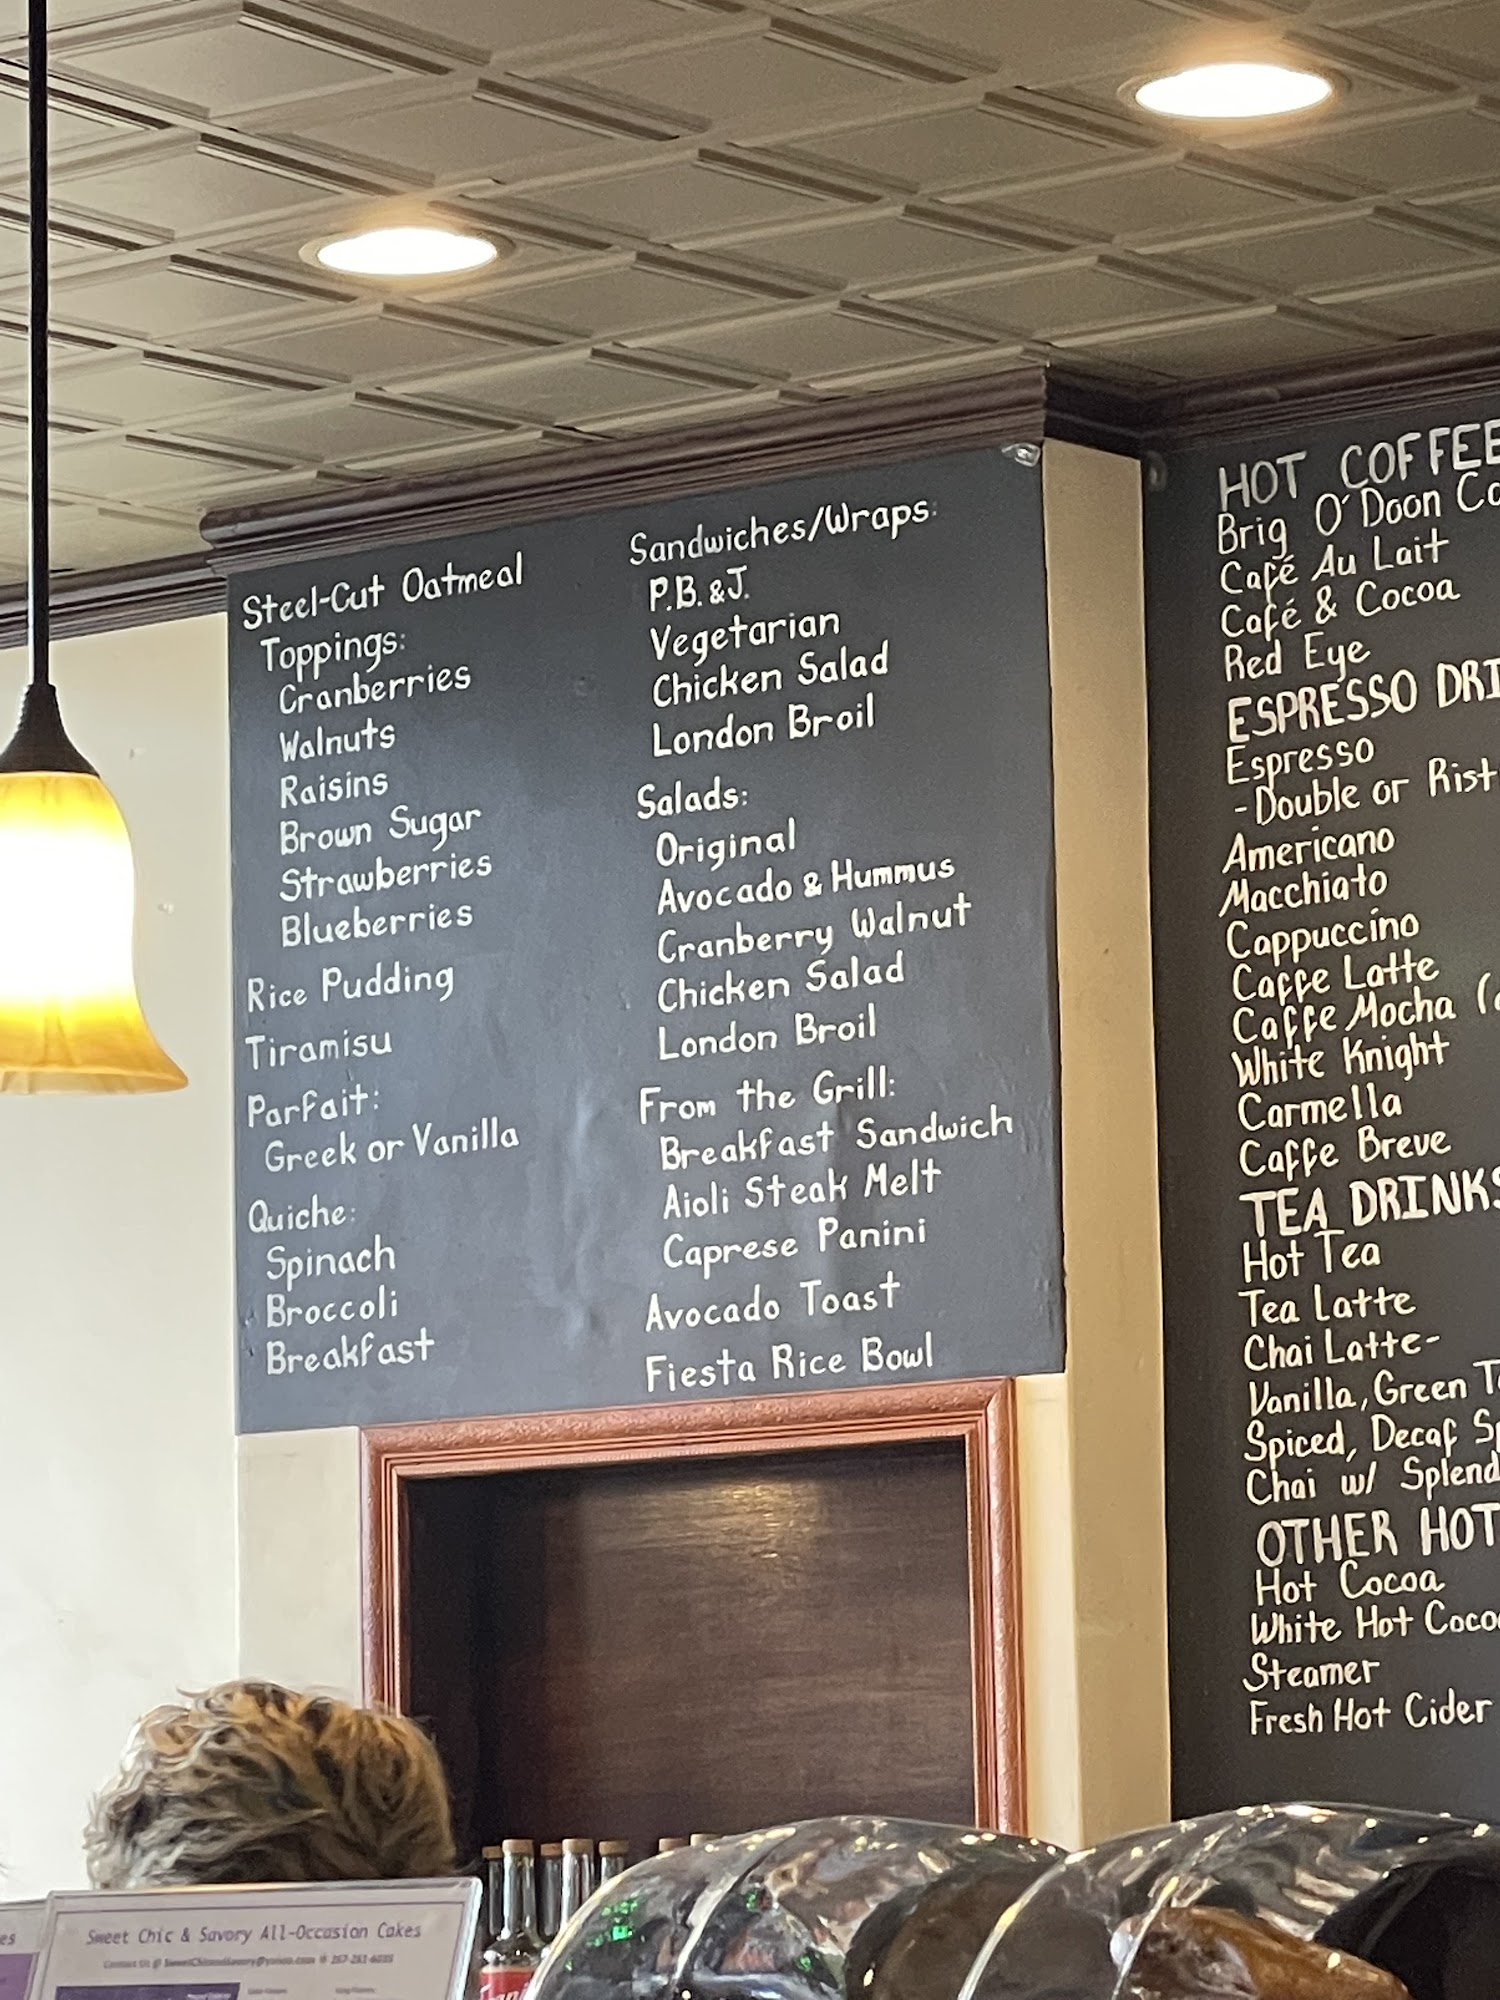 Steel-Cut Oatmeal
Toppings:
Cranberries
Walnuts
Raisins
Brown Sugar
Strawberries
Blueberries
Rice Pudding
Tiramisu
Parfait:
Greek or Vanilla
Quiche:
Spinach
Broccoli
Breakfast
Sandwiches/Wraps:
P.B. & J.
Vegetarian
Chicken Salad
London Broil
Salads:
Original
Avocado & Hummus
Cranberry Walnut
Chicken Salad
London Broil
From the Grill:
Breakfast Sandwich
Aioli Steak Melt
Caprese Panini
Avocado Toast
Fiesta Rice Bowl
HOT COFFEE
Brig O'Doon Co
Café Au Lait
Café & Cocoa
Red Eye
ESPRESSO DRI
Espresso
-Double or Rist
Americano
Macchiato
Cappuccino
Caffe Latte
Caffe Mocha (
White Knight
Carmella
Caffe Breve
TEA DRINKS
Hot Tea
Tea Latte
Chai Latte-
Vanilla, Green T
Spiced, Decaf Sp
Chai w/ Splend
OTHER HOT
Hot Cocoa
White Hot Coco
Steamer
Fresh Hot Cider
Sweet Chic & Savory All-Occasion Cakes